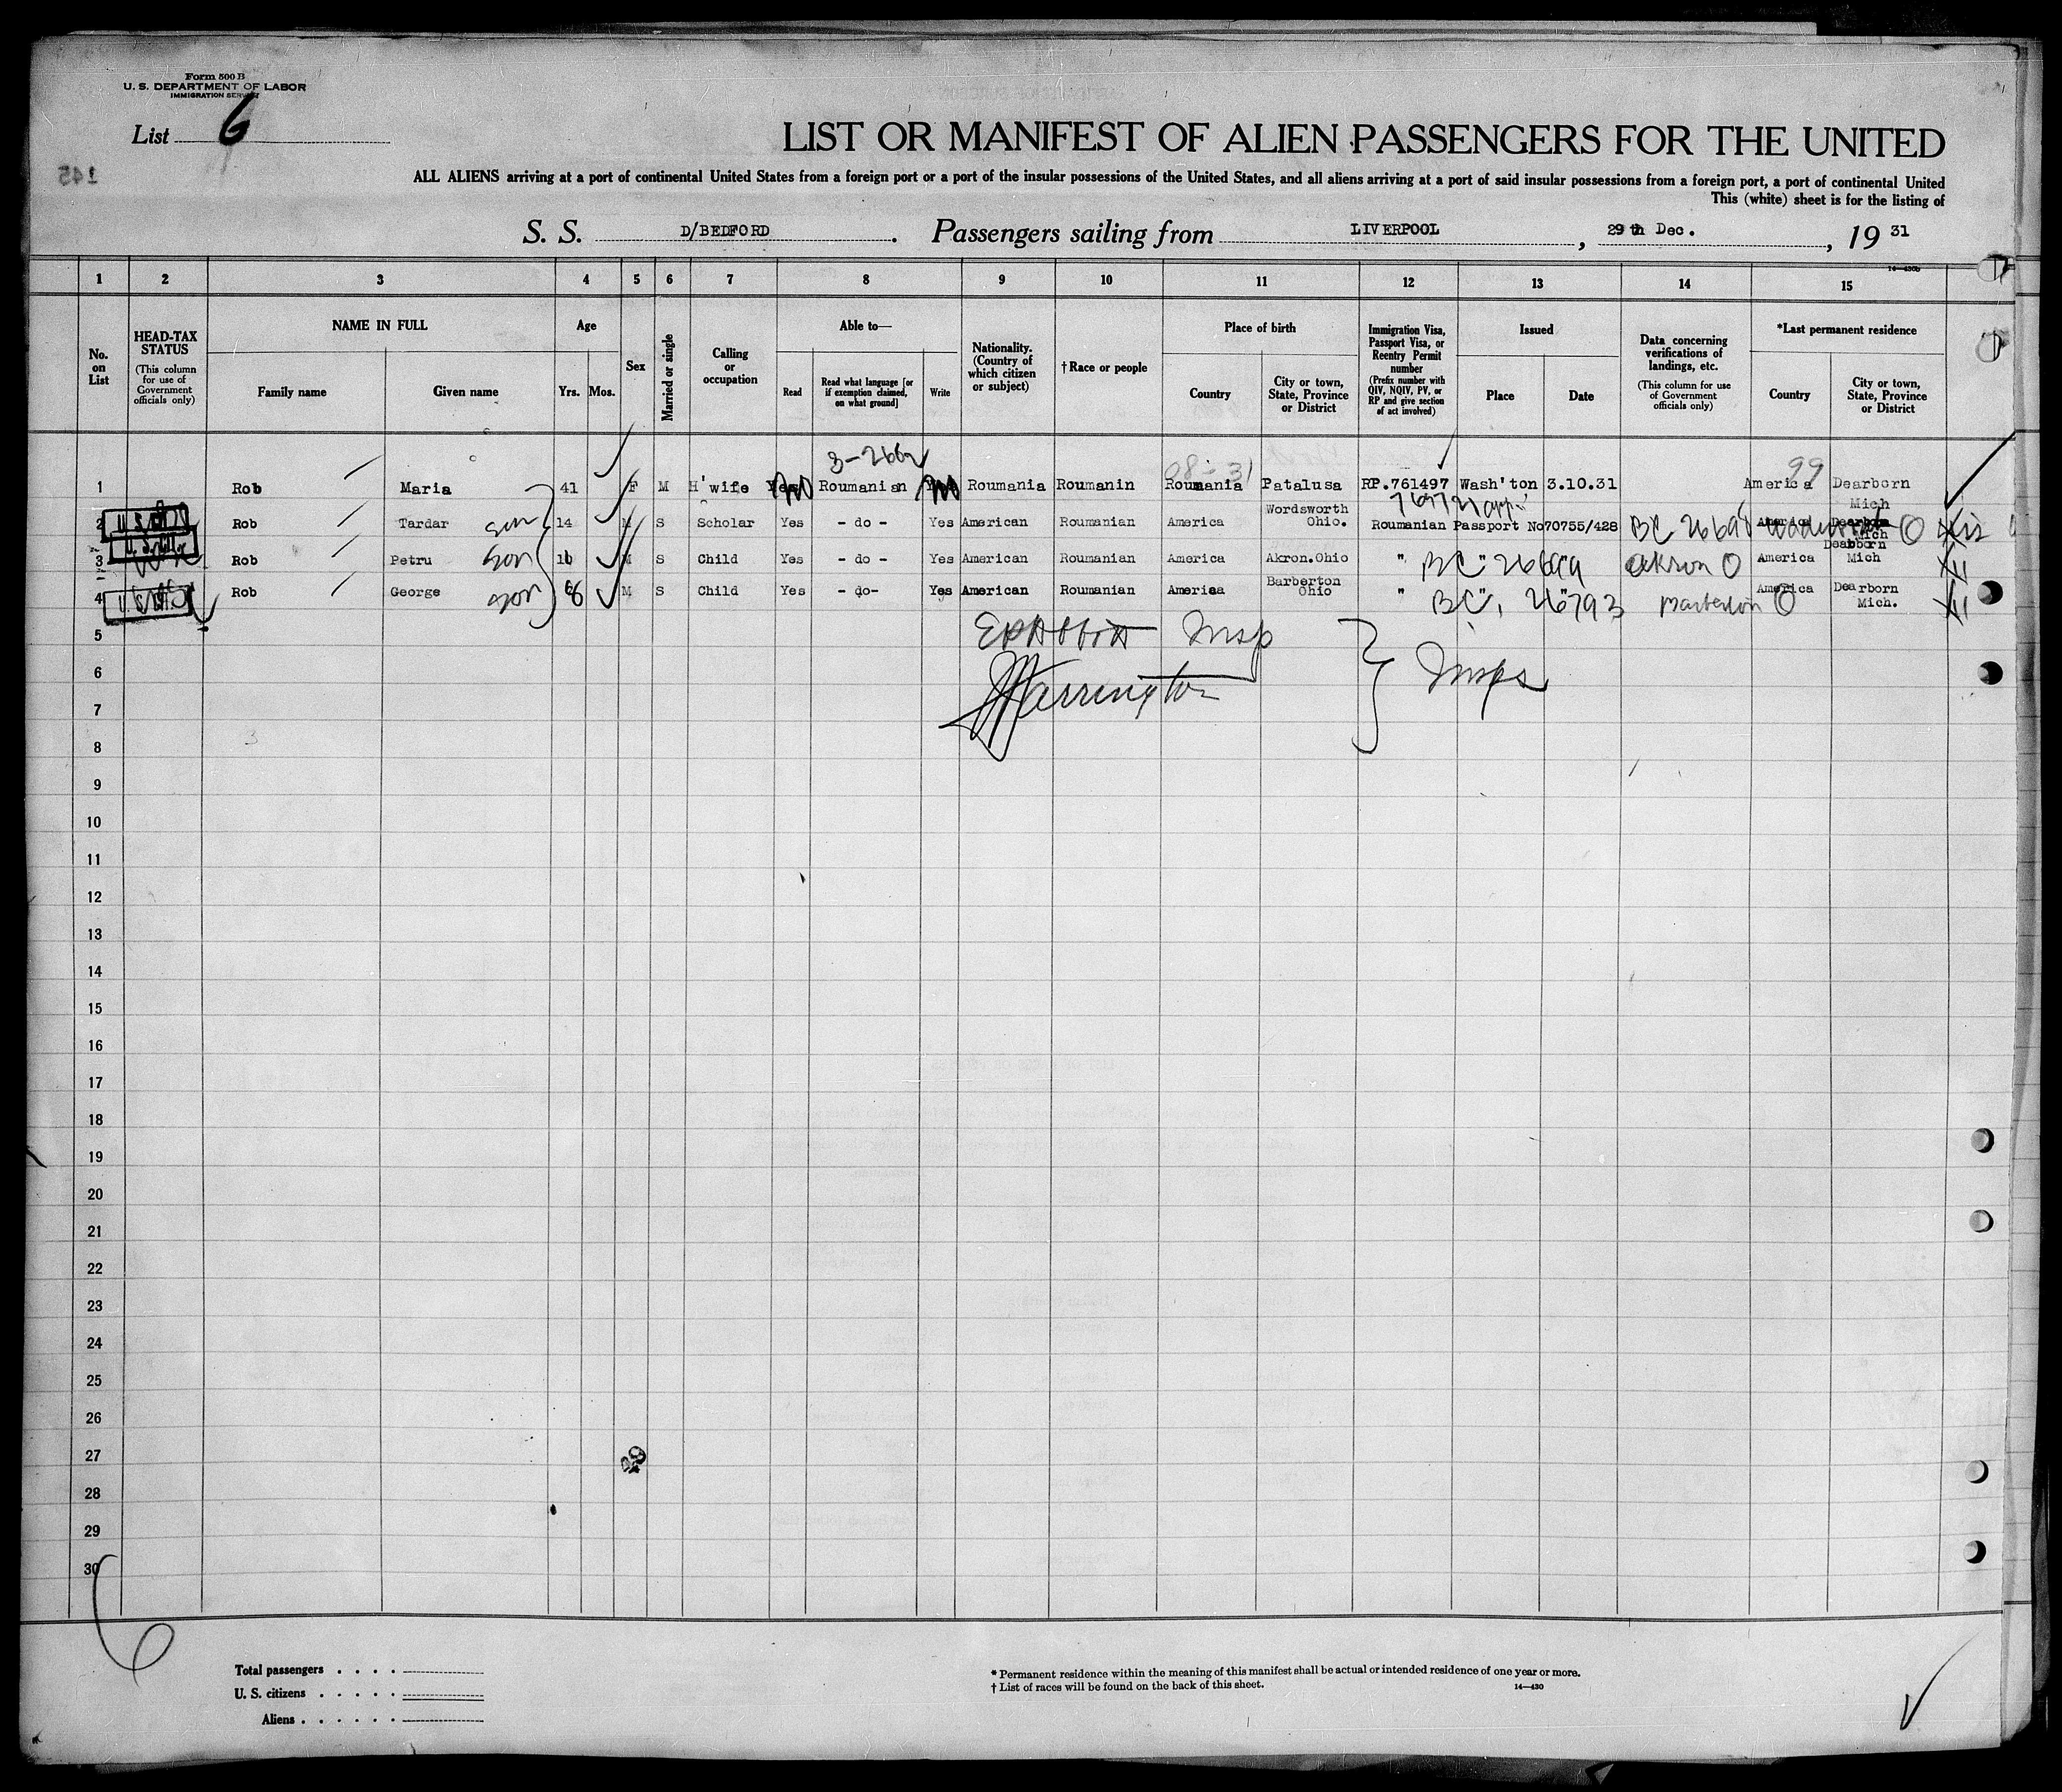 Form 500 B
U. S. DEPARTMENT OF LABOR
IMMIGRATION SERVICE
List 6
145
LIST OR MANIFEST OF ALIEN PASSENGERS FOR THE UNITED
ALL ALIENS arriving at a port of continental United States from a foreign port or a port of the insular possessions of the United States, and all aliens arriving at a port of said insular possessions from a foreign port, a port of continental United
This (white) sheet is for the listing of
S. S. D/BEDFORD. Passengers sailing from LIVERPOOL, 29th Dec., 19 31
14—430b
1 2 3 4 5 6 7 8 9 10 11 12 13 14 15
No. on List
HEAD-TAX STATUS
(This column for use of Government officials only)
NAME IN FULL
Family name Given name
Age
Yrs. Mos.
Sex
Married or single
Calling or occupation
Able to—
Read Read what language [or if exemption claimed, on what ground] Write
Nationality. (Country of which citizen or subject)
†Race or people
Place of birth
Country City or town, State, Province or District
Immigration Visa, Passport Visa, or Reentry Permit number
(Prefix number with QIV, NQIV, PV, or RP and give section of act involved)
Issued
Place Date
Data concerning verifications of landings, etc.
(This column for use of Government officials only)
*Last permanent residence
Country City or town, State, Province or District
3-2662
99
1 Rob Maria 41 F M H'wife Yes No Roumanian Yes No Roumania Roumanin Roumania Patalusa RP.761497 Wash'ton 3.10.31 America Dearborn Mich
2 Rob Tardar son 14 M S Scholar Yes - do - Yes American Roumanian America Wordsworth Ohio. Roumanian Passport No70755/428 BC 26698 America Dearborn Mich
3 Rob Petru son 10 M S Child Yes - do - Yes American Roumanian America Akron.Ohio " BC " 26699 Akron O America Dearborn Mich
4 Rob George son 8 M S Child Yes - do- Yes American Roumanian America Barberton Ohio " BC " 26793 Barberton O America Dearborn Mich.
5 Insp
6 Insps
Warrington
7
8
9
10
11
12
13
14
15
16
17
18
19
20
21
22
23
24
25
26
27
28
29
30
6
Total passengers . . . .
U. S. citizens . . . . .
Aliens . . . . . .
* Permanent residence within the meaning of this manifest shall be actual or intended residence of one year or more.
† List of races will be found on the back of this sheet.
14—430